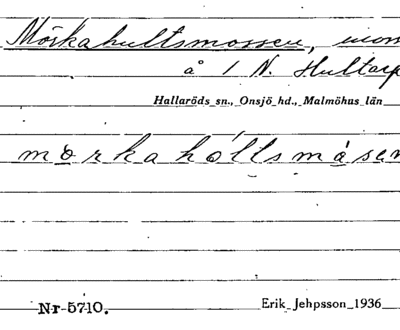 Mörkahultsmossen, inom
å 1 N. Hultarp
Hallaröds sn., Onsjö hd., Malmöhus län
mørkahóltsmåsen
Nr 5710. Erik Jehpsson 1936